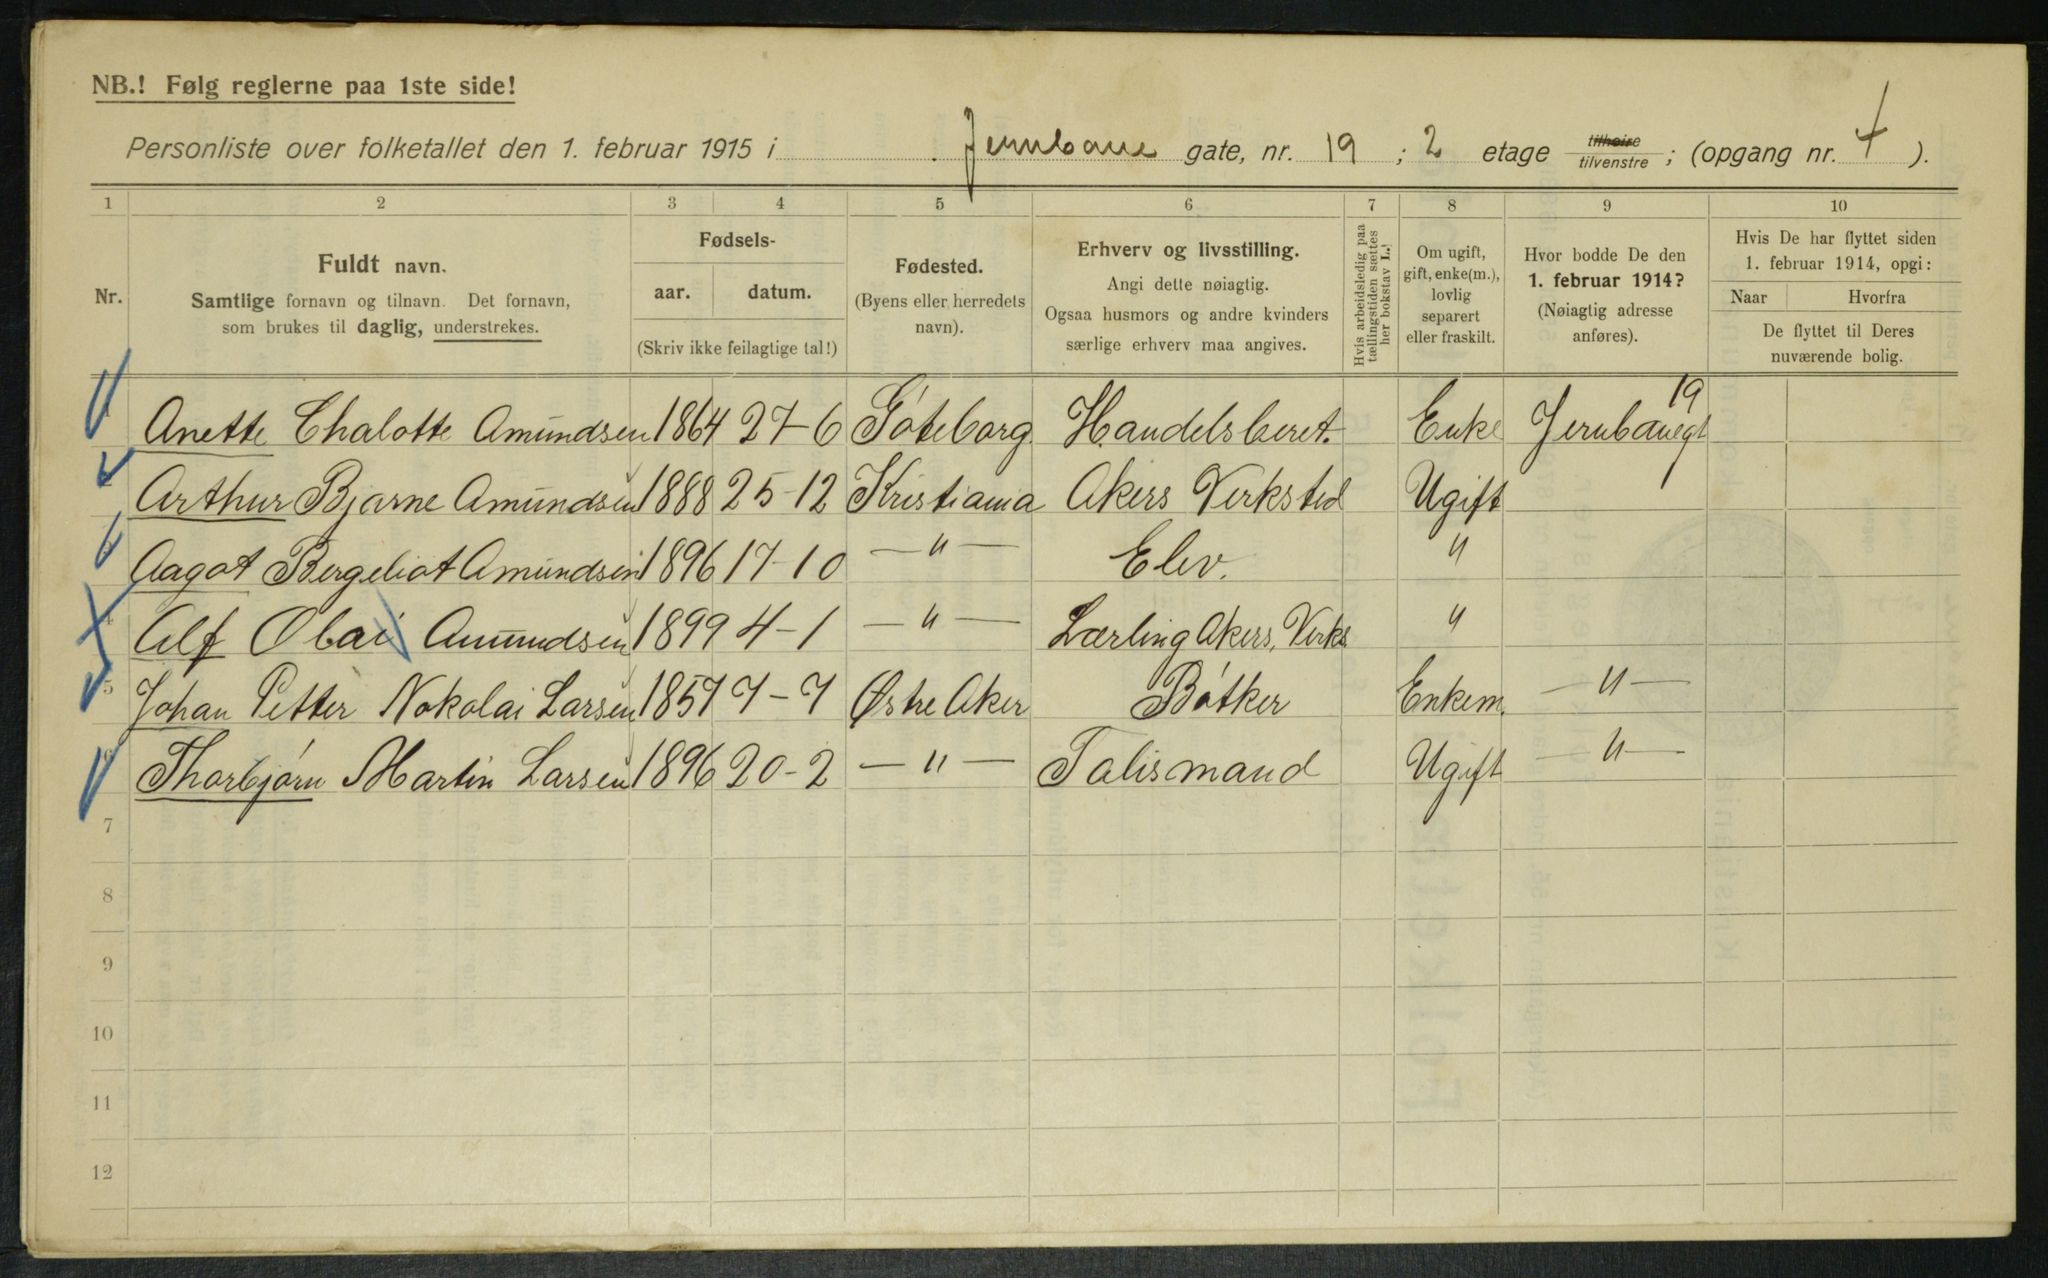 NB.! Følg reglerne paa 1ste side!
Personliste over folketallet den 1. februar 1915 i Jernbane gate, nr. 19 ; 2 etage tilhøire/tilvenstre ; (opgang nr. 4 ).
1 2 3 4 5 6 7 8 9 10
Nr.
Fuldt navn.
Samtlige fornavn og tilnavn. Det fornavn,
som brukes til daglig, understrekes.
Fødsels-
aar. datum.
(Skriv ikke feilagtige tal!)
Fødested.
(Byens eller herredets
navn).
Erhverv og livsstilling.
Angi dette nøiagtig.
Ogsaa husmors og andre kvinders
særlige erhverv maa angives.
Hvis arbeidsledig paa
tællingstiden sættes
her bokstav L.!
Om ugift,
gift, enke(m.),
lovlig
separert
eller fraskilt.
Hvor bodde De den
1. februar 1914?
(Nøiagtig adresse
anføres).
Hvis De har flyttet siden
1. februar 1914, opgi:
Naar Hvorfra
De flyttet til Deres
nuværende bolig.
1 Anette Chalotte Amundsen 1864 27-6 Göteborg Handelsberet. Enke Jernbanegt 19
2 Arthur Bjarne Amundsen 1888 25-12 Kristiania Akers Verksted Ugift
3 Aagot Bergeliot Amundsen 1896 17-10 — " — Elev. "
4 Alf Olai Amundsen 1899 4-1 — " — Lærling Akers. Verks "
5 Johan Petter Nokolai Larsen 1857 7-7 Østre Aker Bötker Enkem. — " —
6 Thorbjørn Martin Larsen 1896 20-2 — " — Talismand Ugift — " —
7
8
9
10
11
12